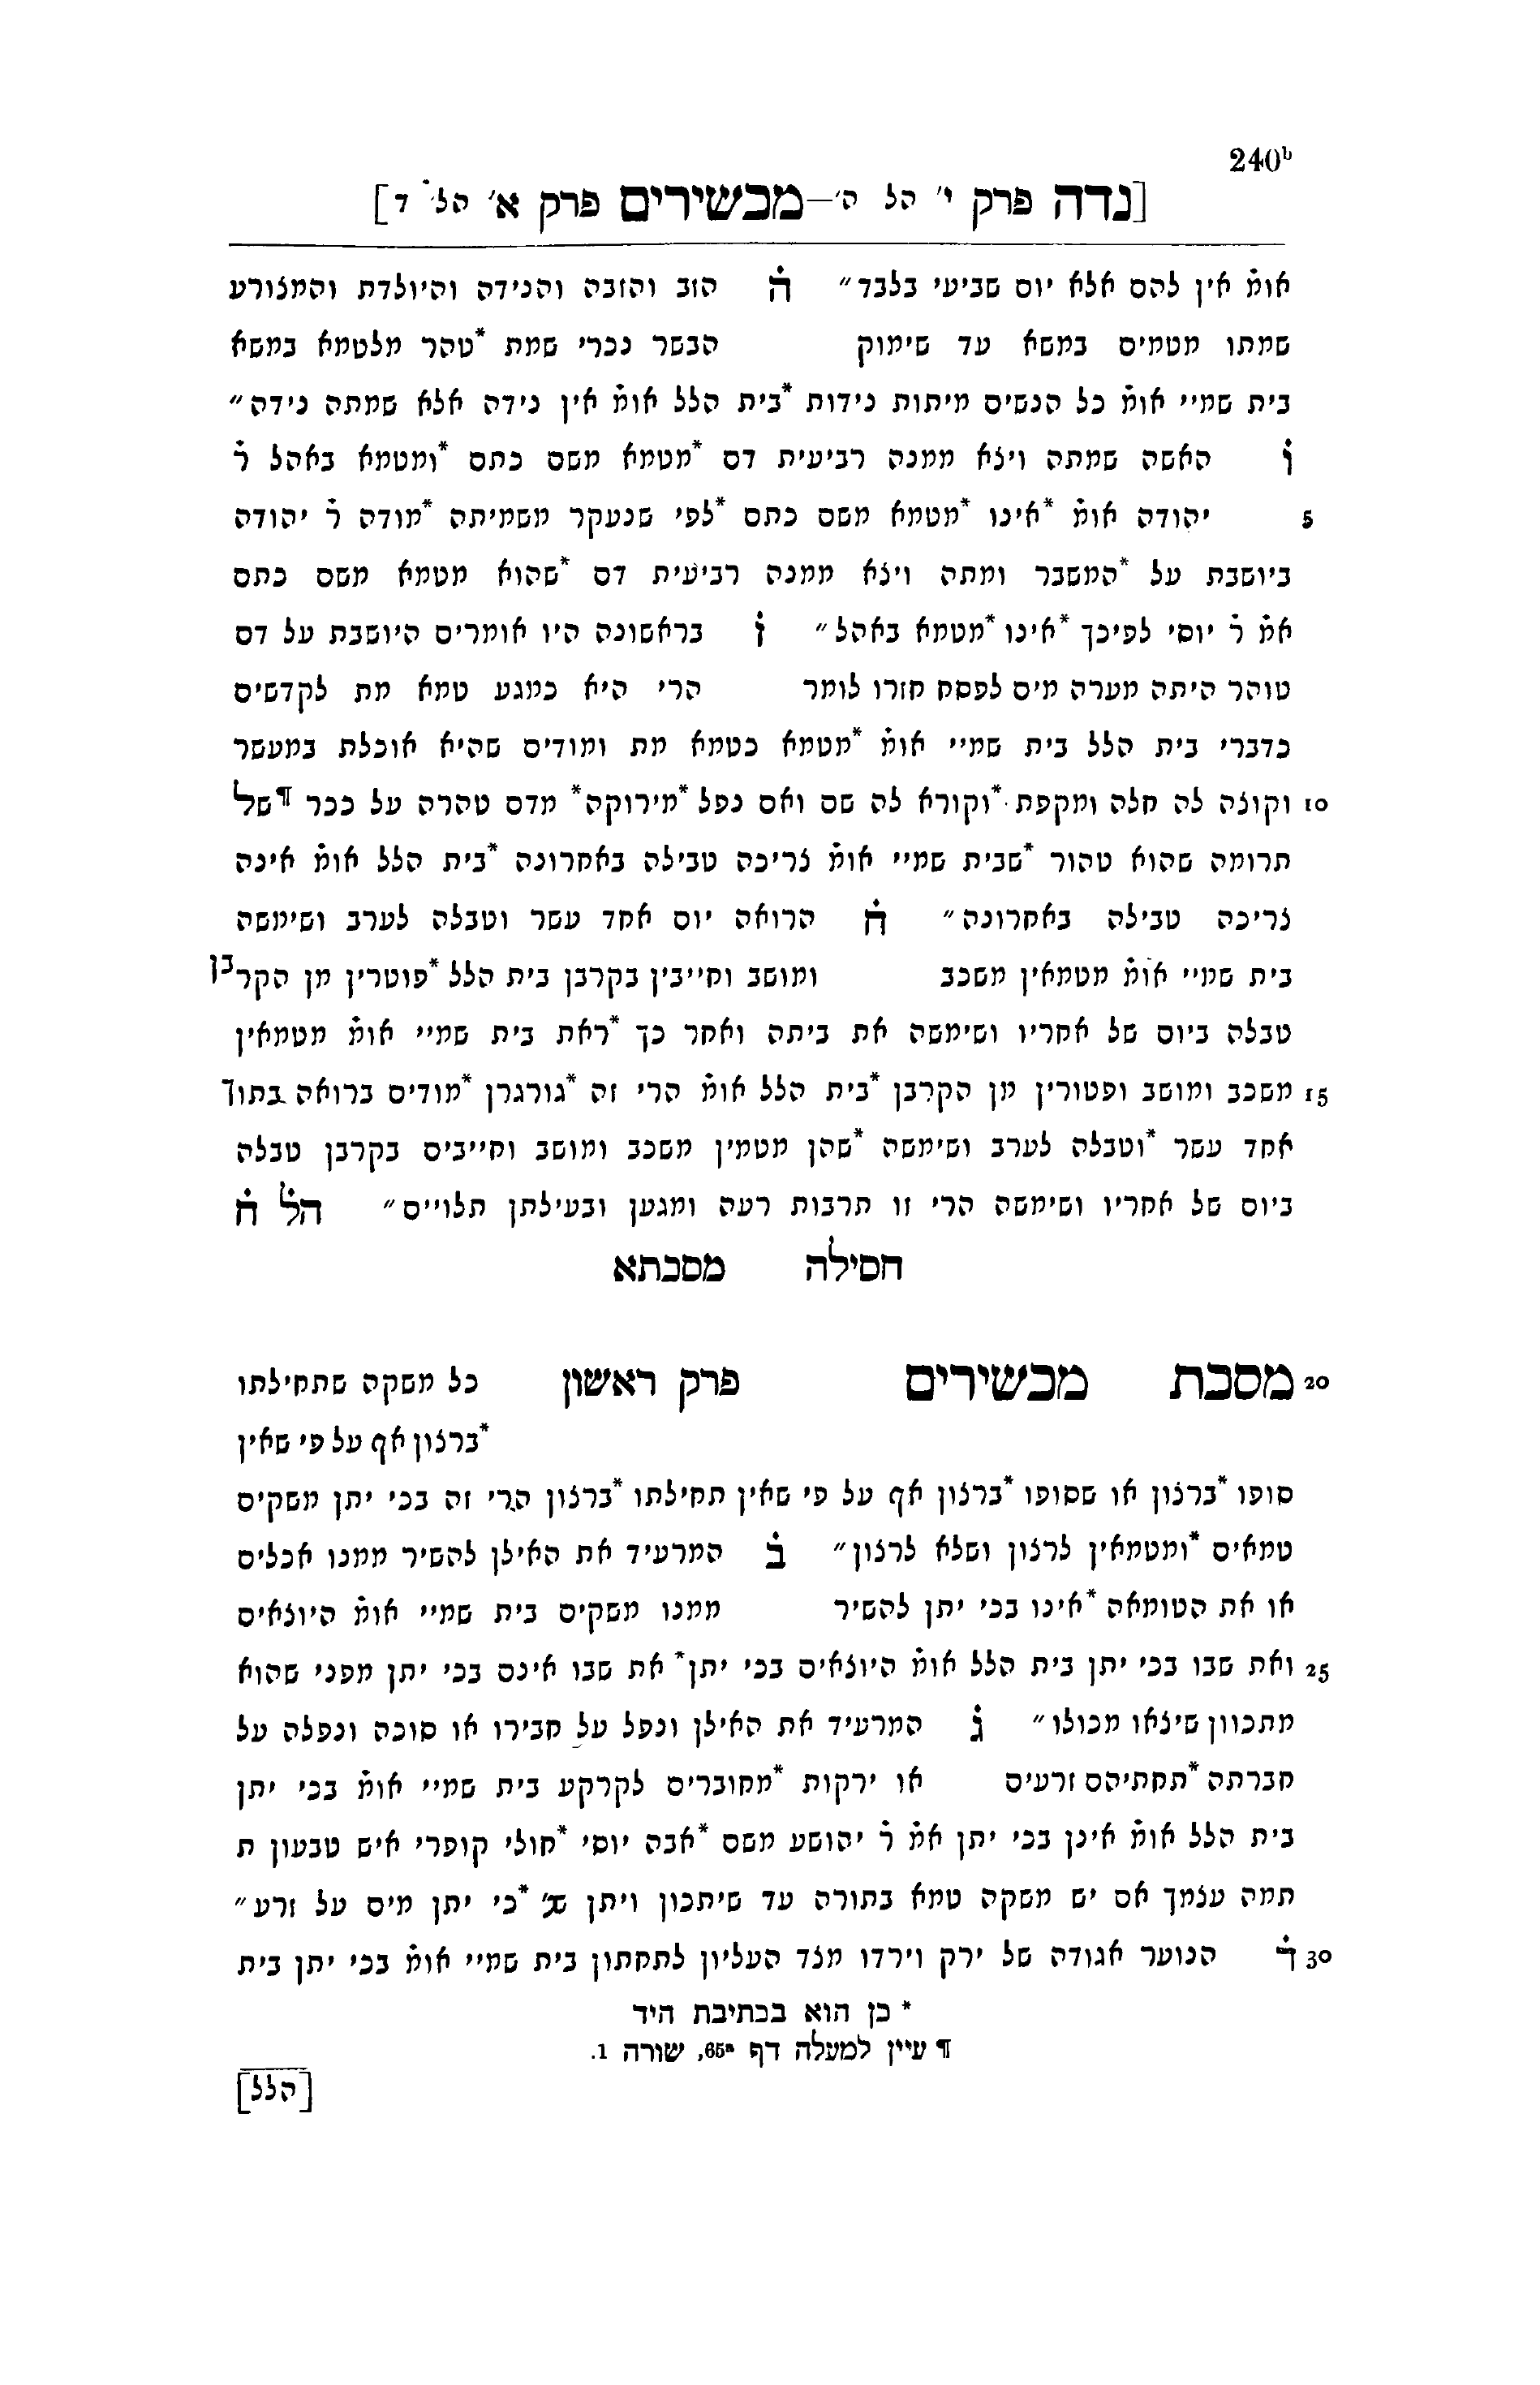 240b
[נדה פרק י' הל ה'—מכשירים פרק א' הל' ד]
אומ̇ אין להם אלא יום שביעי בלבד״ ה̇ הזב והזבה והנידה והיולדת והמצורע
שמתו מטמים במשא עד שימוק הבשר נכרי שמת *טהר מלטמא במשא
בית שמיי אומ̇ כל הנשים מיתות נידות *בית הלל אומ̇ אין נידה אלא שמתה נידה״
ו̇ האשה שמתה ויצא ממנה רביעית דם *מטמא משם כתם *ומטמא באהל ר̇
5 יהודה אומ̇ *אינו *מטמא משם כתם *לפי שנעקר משמיתה *מודה ר̇ יהודה
ביושבת על *המשבר ומתה ויצא ממנה רביעית דם *שהוא מטמא משם כתם
אמ̇ ר̇ יוסי לפיכך *אינו *מטמא באהל״ ז̇ בראשונה היו אומרים היושבת על דם
טוהר היתה מערה מים לפסח חזרו לומר הרי היא כמגע טמא מת לקדשים
כדברי בית הלל בית שמיי אומ̇ *מטמא כטמא מת ומודים שהיא אוכלת במעשר
10 וקוצה לה חלה ומקפת *וקורא לה שם ואם נפל *מירוקה* מדם טהרה על ככר ¶של
תרומה שהוא טהור *שבית שמיי אומ̇ צריכה טבילה באחרונה *בית הלל אומ̇ אינה
צריכה טבילה באחרונה״ ח̇ הרואה יום אחד עשר וטבלה לערב ושימשה
בית שמיי אומ̇ מטמאין משכב ומושב וחייבין בקרבן בית הלל *פוטרין מן הקרבן
טבלה ביום של אחריו ושימשה את ביתה ואחר כך *ראת בית שמיי אומ̇ מטמאין
15 משכב ומושב ופטורין מן הקרבן *בית הלל אומ̇ הרי זה *גורגרן *מודים ברואה בתוך
אחד עשר *וטבלה לערב ושימשה *שהן מטמין משכב ומושב וחייבים בקרבן טבלה
ביום של אחריו ושימשה הרי זו תרבות רעה ומגען ובעילתן תלויים״ הל̇ ח̇
חסילה מסכתא
20 מסכת מכשירים פרק ראשון כל משקה שתחילתו
*ברצון אף על פי שאין
סופו *ברצון או שסופו *ברצון אף על פי שאין תחילתו *ברצון הרי זה בכי יתן משקים
טמאים *ומטמאין לרצון ושלא לרצון״ ב̇ המרעיד את האילן להשיר ממנו אכלים
או את הטומאה *אינו בכי יתן להשיר ממנו משקים בית שמיי אומ̇ היוצאים
25 ואת שבו בכי יתן בית הלל אומ̇ היוצאים בכי יתן* את שבו אינם בכי יתן מפני שהוא
מתכוון שיצאו מכולו״ ג̇ המרעיד את האילן ונפל על חבירו או סוכה ונפלה על
חברתה *תחתיהם זרעים או ירקות *מחוברים לקרקע בית שמיי אומ̇ בכי יתן
בית הלל אומ̇ אינן בכי יתן אמ̇ ר̇ יהושע משם *אבה יוסי *חולי קופרי איש טבעון ת
תמה עצמך אם יש משקה טמא בתורה עד שיתכון ויתן *כי יתן מים על זרע״
30 ד̇ הנוער אגודה של ירק וירדו מצד העליון לתחתון בית שמיי אומ̇ בכי יתן בית
* כן הוא בכתיבת היד
¶ עיין למעלה דף 65a, שורה 1.
[הלל]